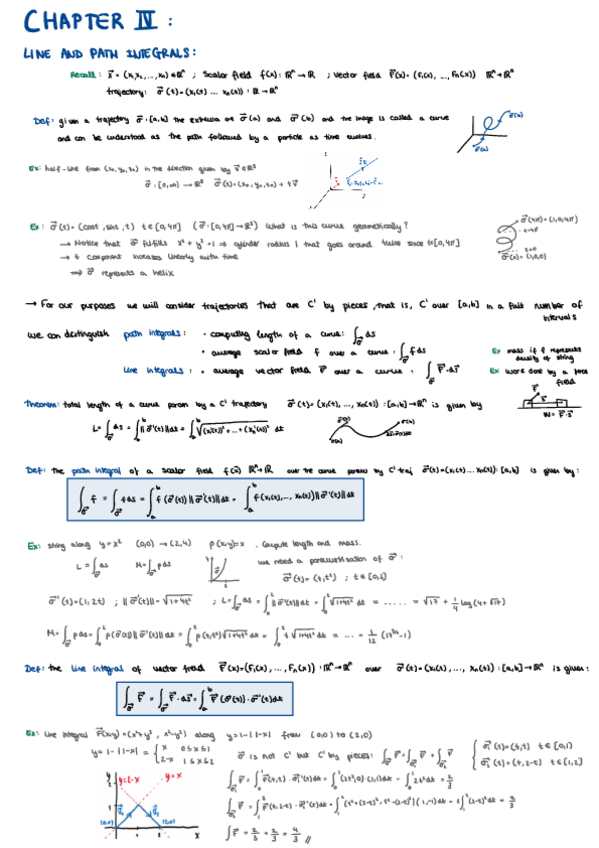 CHAPTER IV :
LINE AND PATH INTEGRALS :
Recall : x⃗ = (x₁, x₂, ..., xₙ) ∈ ℝⁿ ; Scalar field f(x) : ℝⁿ → ℝ ; Vector field F⃗(x) = (F₁(x), ..., Fₙ(x)) ℝⁿ → ℝⁿ
trajectory : σ⃗(t) = (x₁(t) ... xₙ(t)) : ℝ → ℝⁿ
Def : given a trajectory σ⃗ : [a,b] the extrema are σ⃗(a) and σ⃗(b) and the image is called a curve
and can be understood as the path followed by a particle as time evolves.
σ⃗(b)
σ⃗(a)
Ex : half-line from (x₀, y₀, z₀) in the direction given by v⃗ ∈ ℝ³
σ⃗ : [0, ∞) → ℝ³ σ⃗(t) = (x₀, y₀, z₀) + t v⃗
Ex : σ⃗(t) = (cost, sint, t) t ∈ [0, 4π] (σ⃗ : [0, 4π] → ℝ³) What is this curve geometrically ?
σ⃗(4π) = (1, 0, 4π)
→ Notice that σ⃗ fulfills x² + y² = 1 ⇒ cylinder radius 1 that goes around twice since t ∈ [0, 4π]
→ z component increases linearly with time
σ⃗(0) = (1, 0, 0)
⇒ σ⃗ represents a helix
→ For our purposes we will consider trajectories that are C¹ by pieces, that is, C¹ over [a,b] in a finit number of
intervals
we can distinguish path integrals : · computing length of a curve : ∫σ⃗ ds
· average scalar field f over a curve : ∫σ⃗ f ds
Ex mass if f represents
density of string
line integrals : · average vector field F⃗ over a curve : ∫σ⃗ F⃗ · ds⃗
Ex work done by a force
field
W = F⃗ · s⃗
Theorem : total length of a curve param by a C¹ trajectory σ⃗(t) = (x₁(t), ..., xₙ(t)) : [a,b] → ℝⁿ is given by
L = ∫σ⃗ ds = ∫ₐᵇ ||σ⃗'(t)|| dt = ∫ₐᵇ √((x₁'(t))² + ... + (xₙ'(t))²) dt
Def : the path integral of a scalar field f(x⃗) ℝⁿ → ℝ over the curve param by C¹ traj σ⃗(t) = (x₁(t) ... xₙ(t)) : [a,b] is given by :
∫σ⃗ f = ∫σ⃗ f ds = ∫ₐᵇ f(σ⃗(t)) ||σ⃗'(t)|| dt = ∫ₐᵇ f(x₁(t), ..., xₙ(t)) ||σ⃗'(t)|| dt
Ex : string along y = x² (0,0) → (2,4) ρ(x,y) = x . Compute length and mass.
L = ∫σ⃗ ds M = ∫σ⃗ ρ ds we need a parametrization of σ⃗ :
σ⃗(t) = (t, t²) ; t ∈ [0,2]
σ⃗'(t) = (1, 2t) ; ||σ⃗'(t)|| = √(1+4t²) ; L = ∫σ⃗ ds = ∫₀² ||σ⃗'(t)|| dt = ∫₀² √(1+4t²) dt = ..... = √17 + 1/4 log(4+√17)
M = ∫σ⃗ ρ ds = ∫₀² ρ(σ⃗(t)) ||σ⃗'(t)|| dt = ∫₀² ρ(t, t²) √(1+4t²) dt = ∫₀² t √(1+4t²) dt = ... = 1/12 (17^(3/2) − 1)
Def : the line integral of vector field F⃗(x) = (F₁(x), ..., Fₙ(x)) : ℝⁿ → ℝⁿ over σ⃗(t) = (x₁(t), ..., xₙ(t)) : [a,b] → ℝⁿ is given :
∫σ⃗ F⃗ = ∫σ⃗ F⃗ · ds⃗ = ∫ₐᵇ F⃗(σ⃗(t)) · σ⃗'(t) dt
Ex : line integral F⃗(x,y) = (x²+y², x²−y²) along y = 1 − |1−x| from (0,0) to (2,0)
y = 1 − |1−x| = { x 0≤x≤1
2−x 1≤x≤2
σ⃗ is not C¹ but C¹ by pieces : ∫σ⃗ F⃗ = ∫σ⃗₁ F⃗ + ∫σ⃗₂ F⃗
{ σ⃗₁(t) = (t, t) t ∈ [0,1)
σ⃗₂(t) = (t, 2−t) t ∈ [1,2]
y
y=2−x
y=x
1
(0,0)
1
(2,0)
x
∫σ⃗₁ F⃗ = ∫₀¹ F⃗(t,t) · σ⃗₁'(t) dt = ∫₀¹ (2t², 0) (1,1) dt = ∫₀¹ 2t² dt = 2/3
∫σ⃗₂ F⃗ = ∫₁² F⃗(t, 2−t) · σ⃗₂'(t) dt = ∫₁² (t²+(2−t)², t²−(2−t)²) (1,−1) dt = 2∫₁² (2−t)² dt = 2/3
∫F⃗ = 2/3 + 2/3 = 4/3 //